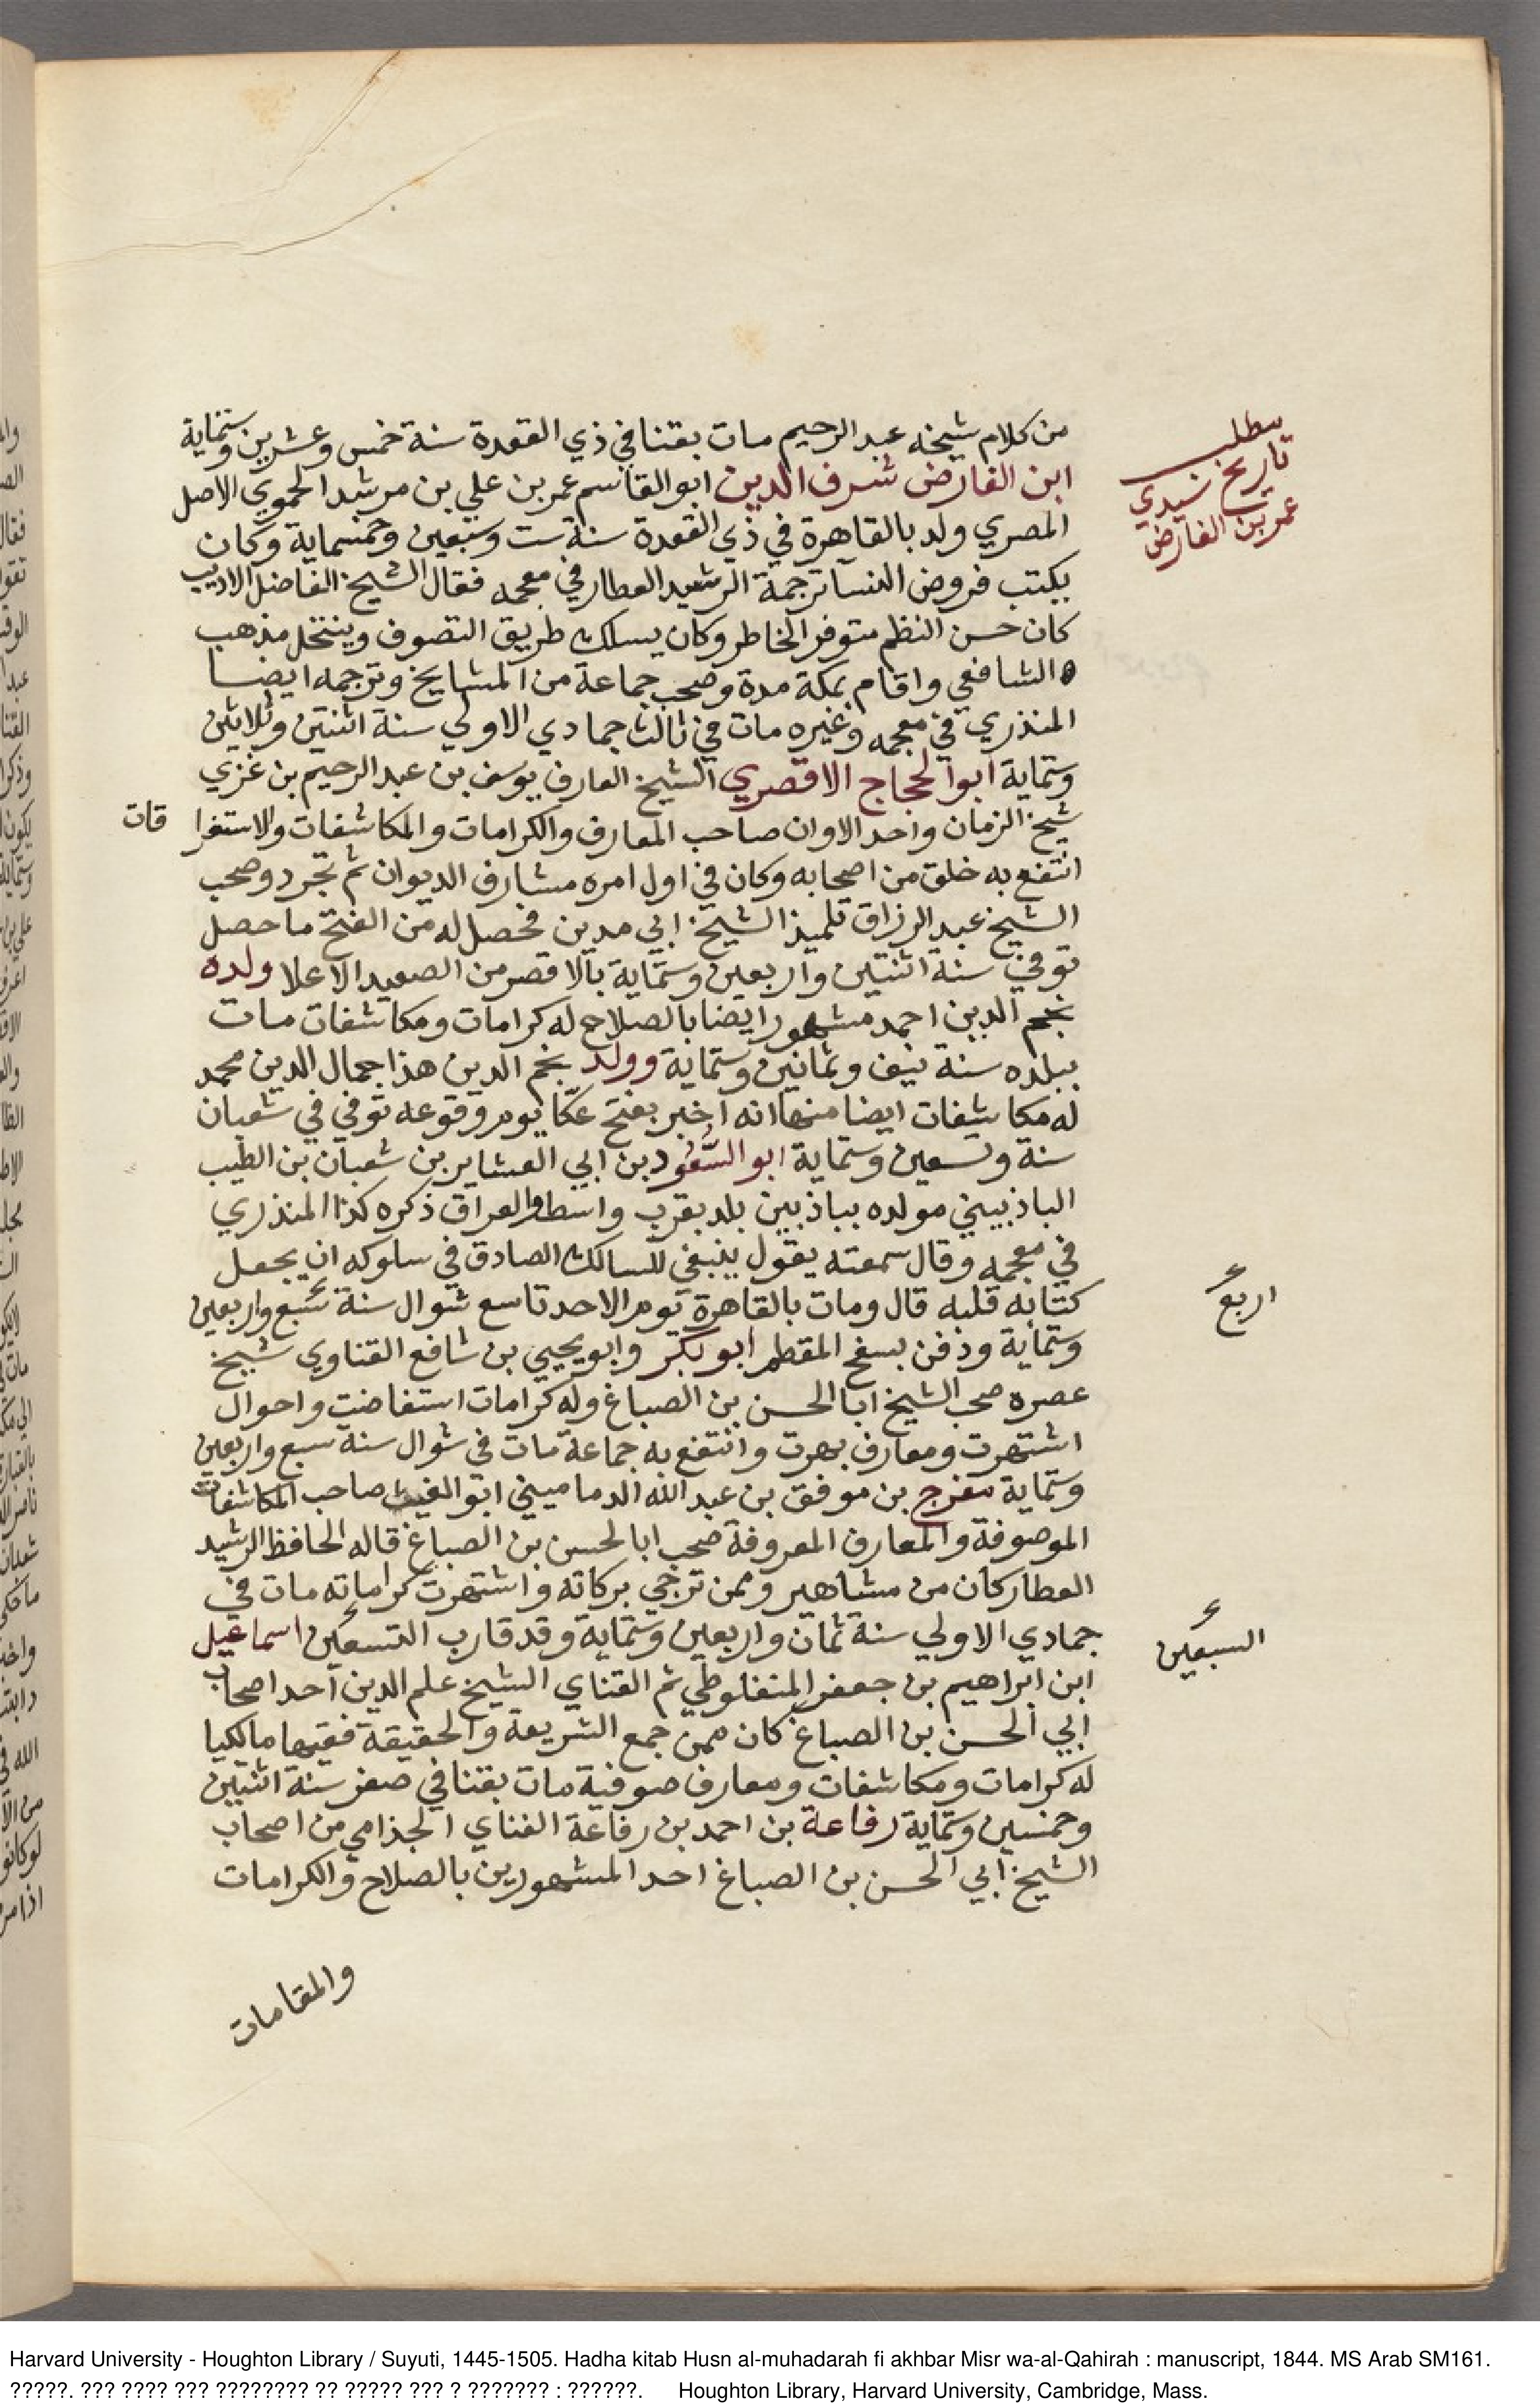 من كلام شيخه عبد الرحيم مات بقنا في ذي القعدة سنة خمس وعشرين وستماية
ابن الفارض شرف الدين ابو القاسم عمر بن علي بن مرشد الحموي الاصل
المصري ولد بالقاهرة في ذي القعدة سنة ست وسبعين وخمسماية وكان
يكتب فروض النسآ ترجمة الرشيد العطار في معجمه فقال الشيخ الفاضل الاديب
كان حسن النظم متوفر الخاطر وكان يسلك طريق التصوف وينتحل مذهب
الشافعي واقام بمكة مدة وصحب جماعة من المشايخ وترجمه ايضا
المنذري في معجمه وغيره مات في ثالث جمادي الاولي سنة اثنتين وثلاثين
وستماية ابو الحجاج الاقصري الشيخ العارف يوسف بن عبد الرحيم بن غزي
شيخ الزمان واحد الاوان صاحب المعارف والكرامات والمكاشفات والاستغرا قات
انتفع به خلق من اصحابه وكان في اول امره مشارف الديوان ثم تجرد وصحب
الشيخ عبد الرزاق تلميذ الشيخ ابي مدين فحصل له من الفتح ما حصل
توفي سنة اثنتين واربعين وستماية بالاقصر من الصعيد الاعلا ولده
نجم الدين احمد مشهور ايضا بالصلاح له كرامات ومكاشفات مات
ببلده سنة نيف وثمانين وستماية وولد نجم الدين هذا جمال الدين محمد
له مكاشفات ايضا منها انه اخبر بفتح عكا يوم وقوعه توفي في شعبان
سنة وتسعين وستماية ابو السُّعُود بن ابي العشاير بن شعبان بن الطيب
الباذبيني مولده بباذبين بلد بقرب واسط والعراق ذكره كذا المنذري
في معجمه وقال سمعته يقول ينبغي للسالك الصادق في سلوكه ان يجعل
كتابه قلبه قال ومات بالقاهرة يوم الاحد تاسع شوال سنة سبع واربعين
وستماية ودفن بسفح المقطم ابو بكر وابو يحيي بن شافع القناوي شيخ
عصره صحب الشيخ ابا الحسن بن الصباغ وله كرامات استفاضت واحوال
اشتهرت ومعارف بهرت وانتفع به جماعة مات في شوال سنة سبع واربعين
وستماية مفرج بن موفق بن عبد الله الدماميني ابو الغيث صاحب المكاشفات
الموصوفة والمعارف المعروفة صحب ابا الحسن بن الصباغ قاله الحافظ الرشيد
العطار كان من مشاهير وممن ترجي بركاته واشتهرت كراماته مات في
جمادي الاولي سنة ثمان واربعين وستماية وقد قارب التسعين اسماعيل
ابن ابراهيم بن جعفر المنفلوطي ثم القناي الشيخ علم الدين احد اصحاب
ابي الحسن بن الصباغ كان ممن جمع الشريعة والحقيقة فقيها مالكيا
له كرامات ومكاشفات ومعارف صوفية مات بقنا في صفر سنة اثنتين
وخمسين وستماية رفاعة بن احمد بن رفاعة القناي الجذامي من اصحاب
الشيخ ابي الحسن بن الصباغ احد المشهورين بالصلاح والكرامات
والمقامات
مطلب
تاريخ سيدي
عمر بن الفارض
اربع
السبعين
Harvard University - Houghton Library / Suyuti, 1445-1505. Hadha kitab Husn al-muhadarah fi akhbar Misr wa-al-Qahirah : manuscript, 1844. MS Arab SM161.
?????. ??? ???? ??? ???????? ?? ????? ??? ? ??????? : ??????. Houghton Library, Harvard University, Cambridge, Mass.